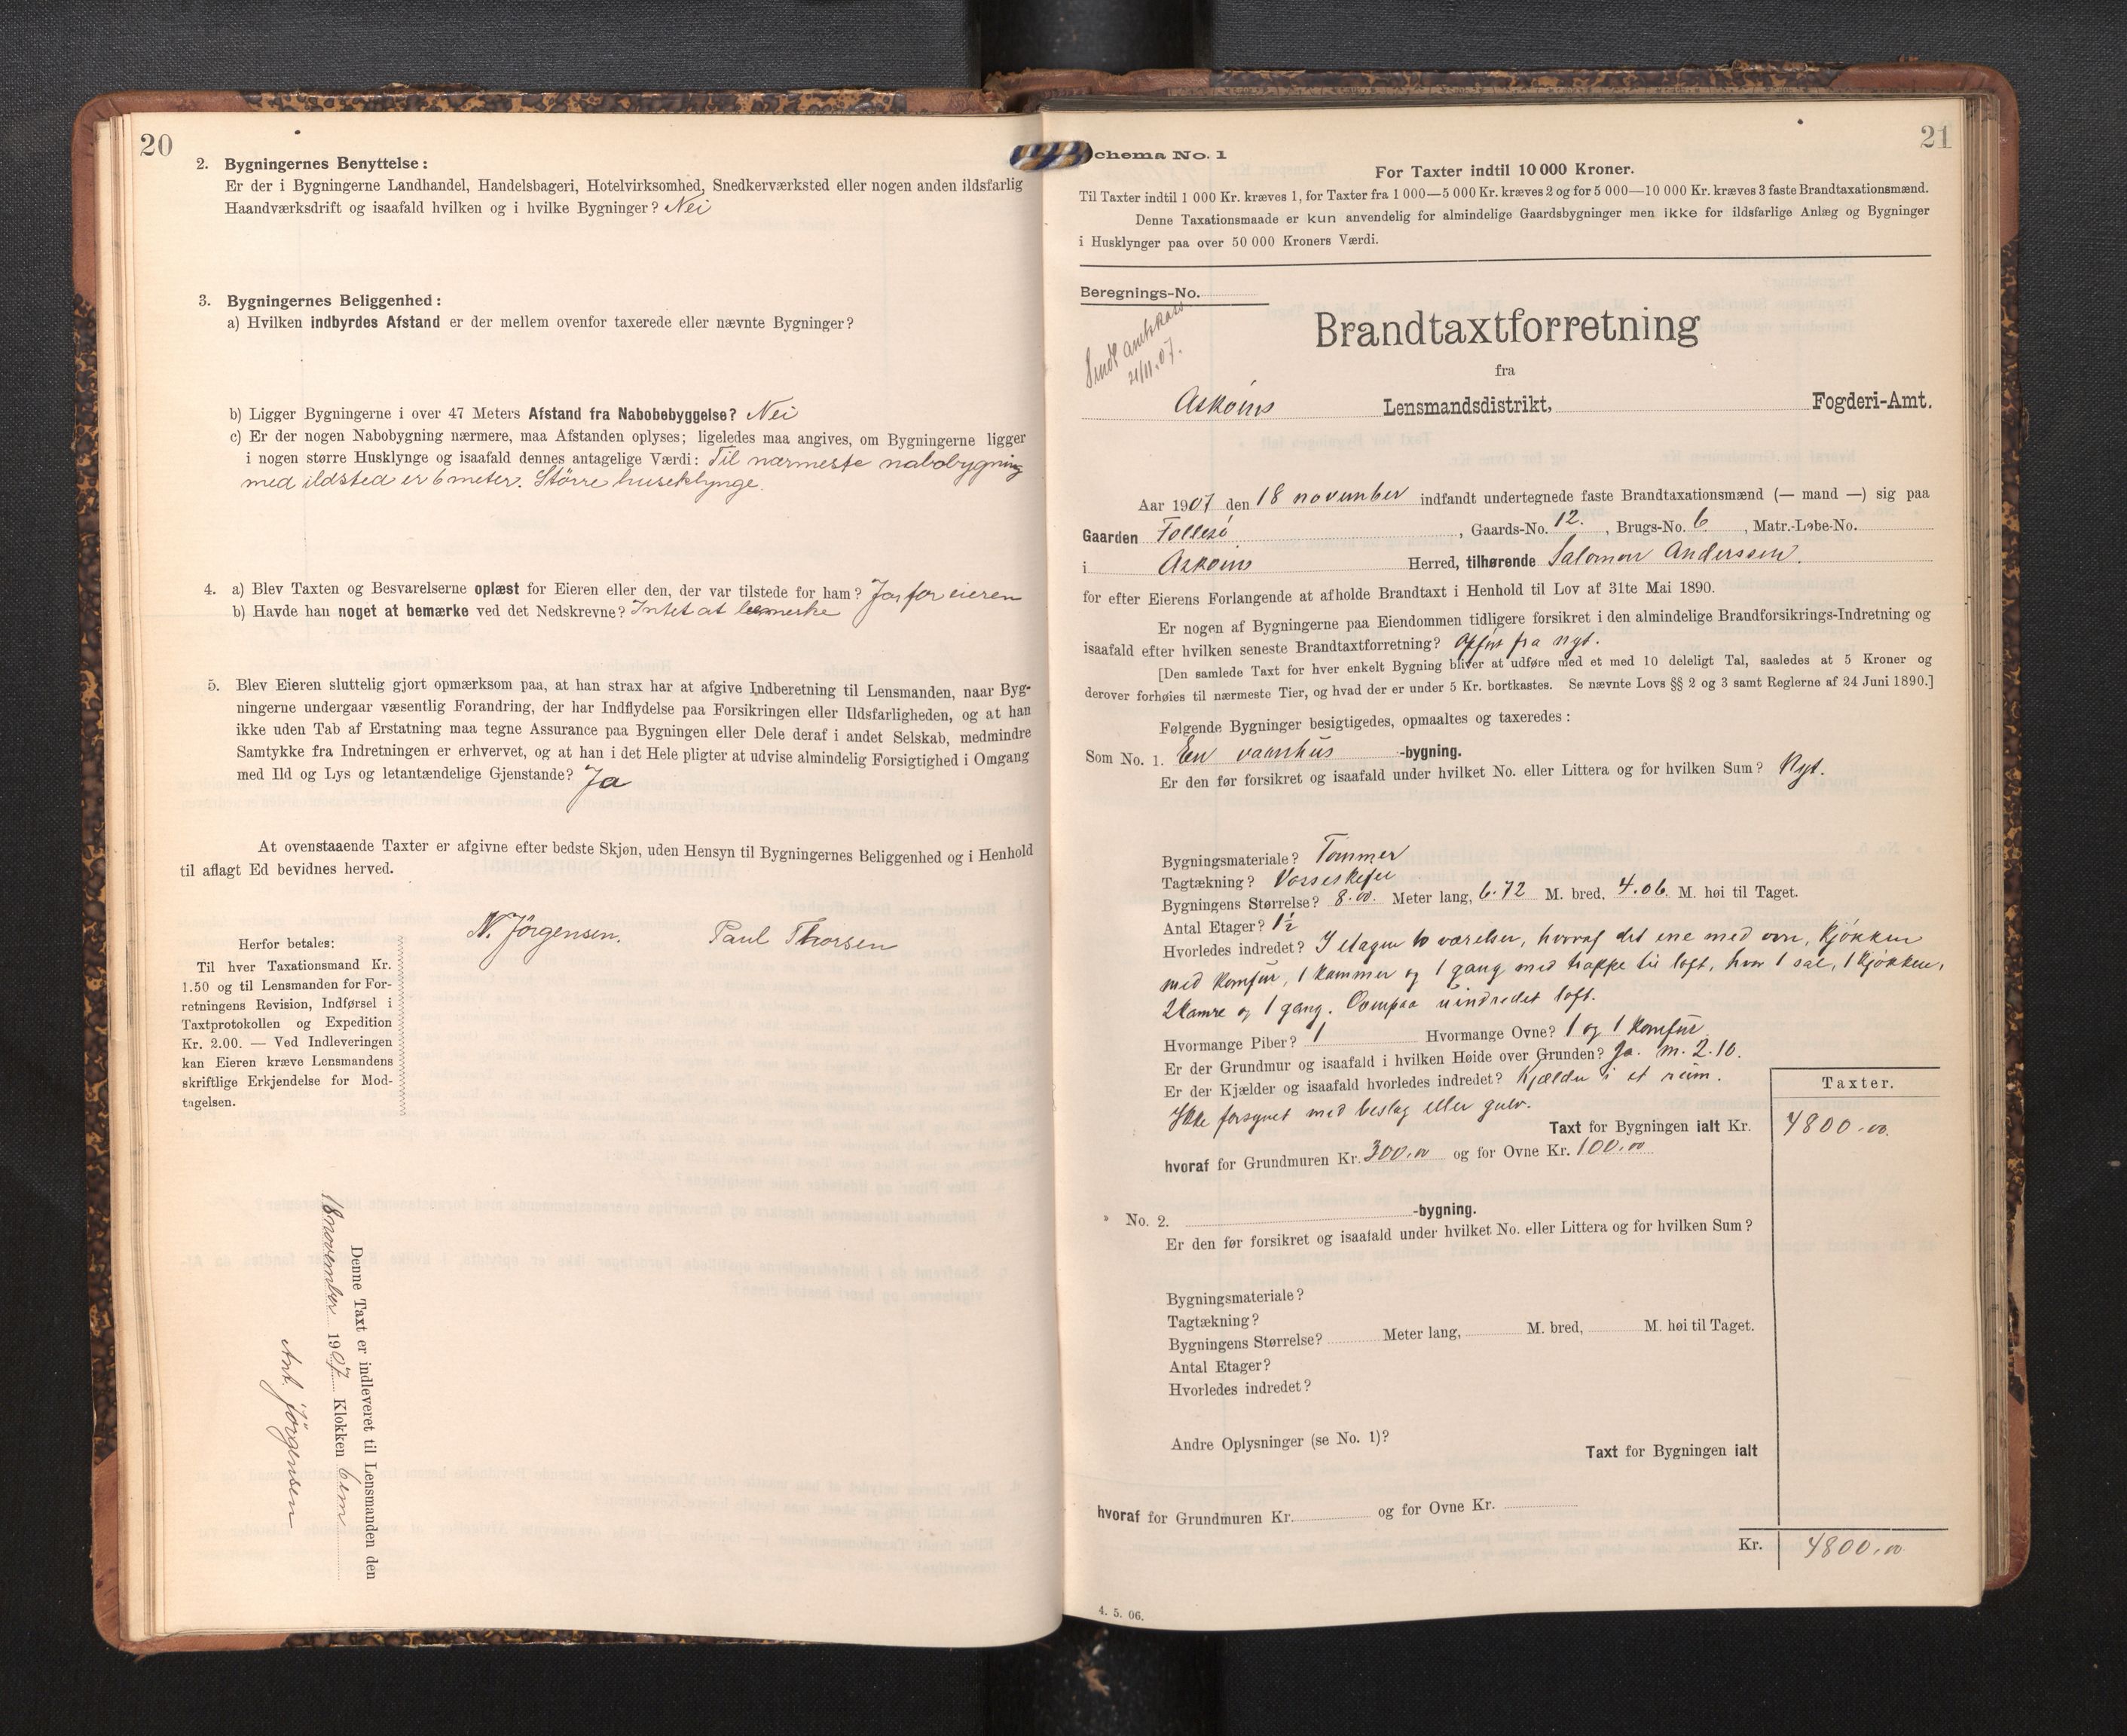 20
2. Bygningernes Benyttelse:
Er der i Bygningerne Landhandel, Handelsbageri, Hotelvirksomhed, Snedkerværksted eller nogen anden ildsfarlig
Haandværksdrift og isaafald hvilken og i hvilke Bygninger? Nei
3. Bygningernes Beliggenhed:
a) Hvilken indbyrdes Afstand er der mellem ovenfor taxerede eller nævnte Bygninger?
b) Ligger Bygningerne i over 47 Meters Afstand fra Nabobebyggelse? Nei
c) Er der nogen Nabobygning nærmere, maa Afstanden oplyses; ligeledes maa angives, om Bygningerne ligger
i nogen større Husklynge og isaafald dennes antagelige Værdi: Til nærmeste nabobygning
med ildsted er 6 meter. Större huseklynge.
4. a) Blev Taxten og Besvarelserne oplæst for Eieren eller den, der var tilstede for ham? Ja, for eieren
b) Havde han noget at bemærke ved det Nedskrevne? Intet at bemerke
5. Blev Eieren sluttelig gjort opmærksom paa, at han strax har at afgive Indberetning til Lensmanden, naar Byg-
ningerne undergaar væsentlig Forandring, der har Indflydelse paa Forsikringen eller Ildsfarligheden, og at han
ikke uden Tab af Erstatning maa tegne Assurance paa Bygningen eller Dele deraf i andet Selskab, medmindre
Samtykke fra Indretningen er erhvervet, og at han i det Hele pligter at udvise almindelig Forsigtighed i Omgang
med Ild og Lys og letantændelige Gjenstande? Ja
At ovenstaaende Taxter er afgivne efter bedste Skjøn, uden Hensyn til Bygningernes Beliggenhed og i Henhold
til aflagt Ed bevidnes herved.
N. Jörgensen. Paul Thorsen
Herfor betales:
Til hver Taxationsmand Kr.
1.50 og til Lensmanden for For-
retningens Revision, Indførsel i
Taxtprotokollen og Expedition
Kr. 2.00. — Ved Indleveringen
kan Eieren kræve Lensmandens
skriftlige Erkjendelse for Mod-
tagelsen.
Denne Taxt er indleveret til Lensmanden den
18 november 1907 Klokken 6 em
Ant. Jörgensen
21
chema No. 1
For Taxter indtil 10 000 Kroner.
Til Taxter indtil 1 000 Kr. kræves 1, for Taxter fra 1 000—5 000 Kr. kræves 2 og for 5 000—10 000 Kr. kræves 3 faste Brandtaxationsmænd.
Denne Taxationsmaade er kun anvendelig for almindelige Gaardsbygninger men ikke for ildsfarlige Anlæg og Bygninger
i Husklynger paa over 50 000 Kroners Værdi.
Beregnings-No.
Sendt amtskass.
21/11.07.
Brandtaxtforretning
fra
Askøins Lensmandsdistrikt, Fogderi-Amt.
Aar 1907 den 18 november indfandt undertegnede faste Brandtaxationsmænd (— mand —) sig paa
Gaarden Follesö, Gaards-No. 12., Brugs-No. 6, Matr.-Løbe-No.
i Askøins Herred, tilhørende Salomon Anderssen.
for efter Eierens Forlangende at afholde Brandtaxt i Henhold til Lov af 31te Mai 1890.
Er nogen af Bygningerne paa Eiendommen tidligere forsikret i den almindelige Brandforsikrings-Indretning og
isaafald efter hvilken seneste Brandtaxtforretning? Opført fra nyt.
[Den samlede Taxt for hver enkelt Bygning bliver at udføre med et med 10 deleligt Tal, saaledes at 5 Kroner og
derover forhøies til nærmeste Tier, og hvad der er under 5 Kr. bortkastes. Se nævnte Lovs §§ 2 og 3 samt Reglerne af 24 Juni 1890.]
Følgende Bygninger besigtigedes, opmaaltes og taxeredes:
Som No. 1. En vaanhus -bygning.
Er den før forsikret og isaafald under hvilket No. eller Littera og for hvilken Sum? Nyt.
Bygningsmateriale? Tömmer
Tagtækning? Vosseskifer
Bygningens Størrelse? 8.00. Meter lang, 6.72 M. bred, 4.06 M. høi til Taget.
Antal Etager? 1½
Hvorledes indredet? I etagen to værelser, hvoraf det ene med ovn, kjøkken
med komfur, 1 kammer og 1 gang med trappe til loft, hvor 1 sal, 1 kjøkken,
2 kamre og 1 gang. Ovenpaa uindredet loft.
Hvormange Piber? 1 Hvormange Ovne? 1 og 1 komfur
Er der Grundmur og isaafald i hvilken Høide over Grunden? Ja. m. 2.10.
Er der Kjælder og isaafald hvorledes indredet? Kjælder i et reim.
Ikke forsynet med beslag eller gulv.
Taxter.
Taxt for Bygningen ialt Kr. 4800.00.
hvoraf for Grundmuren Kr. 300.00 og for Ovne Kr. 100.00
» No. 2. -bygning.
Er den før forsikret og isaafald under hvilket No. eller Littera og for hvilken Sum?
Bygningsmateriale?
Tagtækning?
Bygningens Størrelse? Meter lang, M. bred, M. høi til Taget.
Antal Etager?
Hvorledes indredet?
Andre Oplysninger (se No. 1)?
Taxt for Bygningen ialt
hvoraf for Grundmuren Kr. og for Ovne Kr.
Kr. 4800.00
4. 5. 06.